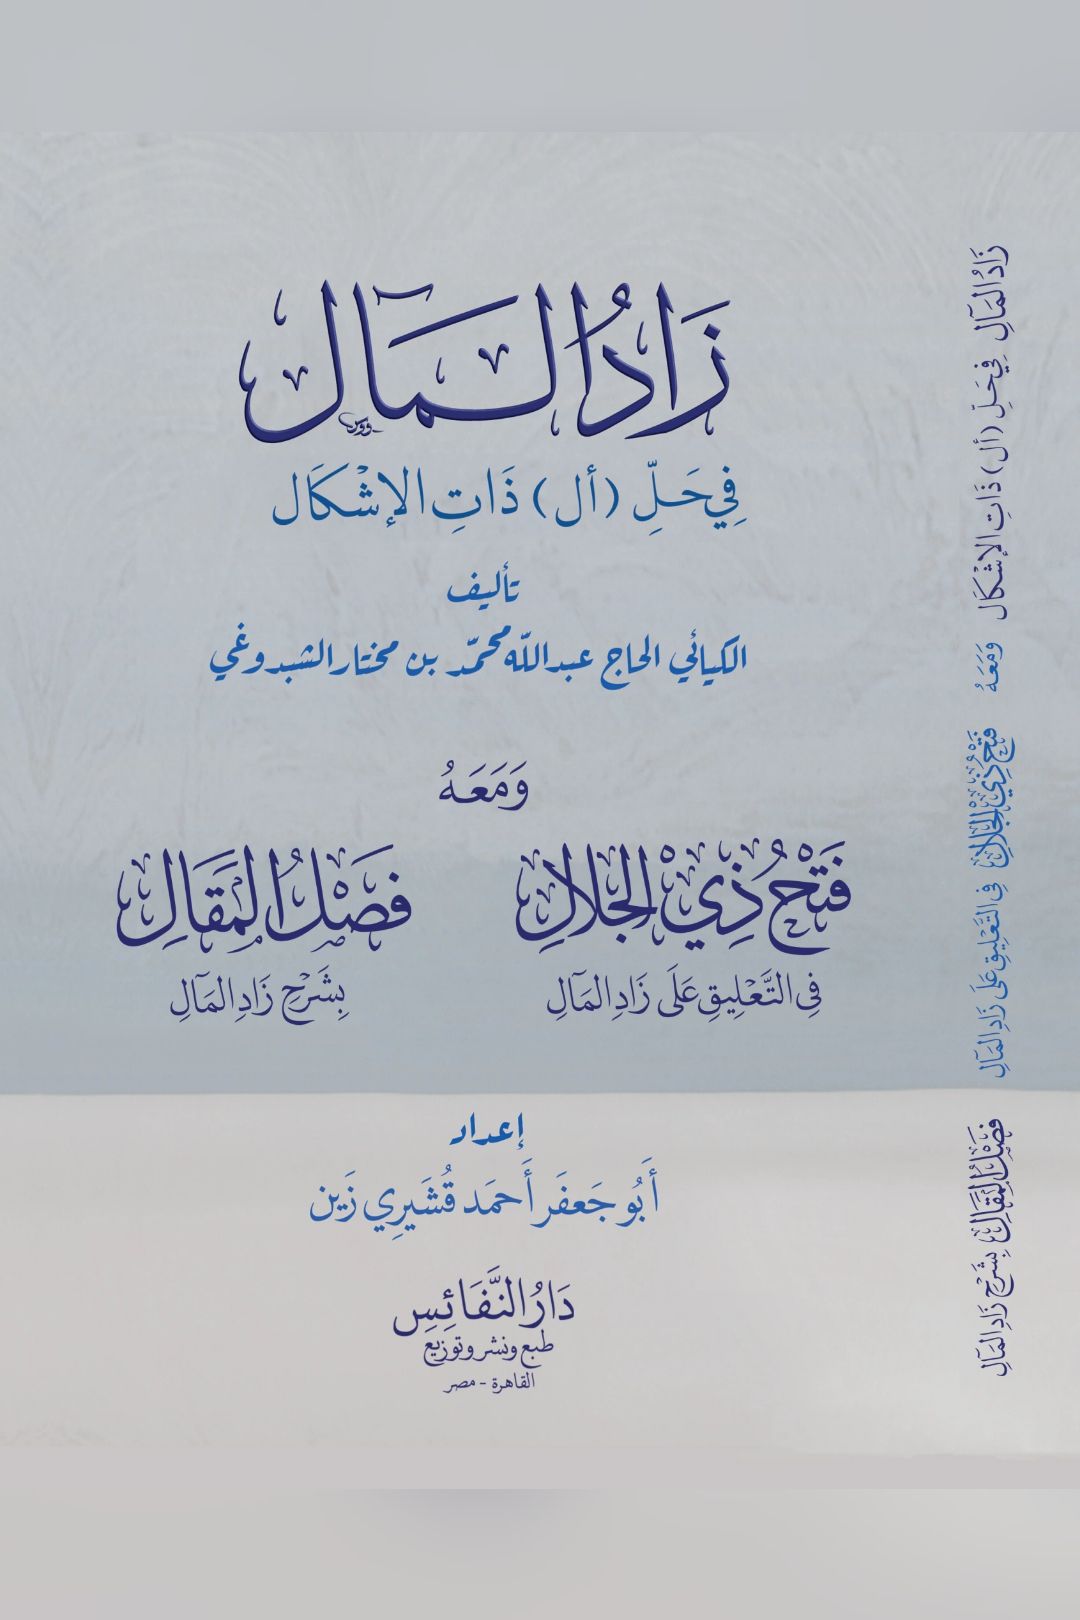 زَادُ المَآل
فِي حَلِّ (أل) ذَاتِ الإشْكَال
تأليف
الكيائي الحاج عبدالله محمّد بن مختار الشبدوغي
وَمَعَهُ
فَتْحُ ذِي الجَلالِ
فِي التَّعْلِيقِ عَلَى زَادِ المَآلِ
فَصْلُ المَقَالِ
بِشَرْحِ زَادِ المَآلِ
إعداد
أَبُو جَعفَر أَحمَد قُشَيرِي زَين
دَارُ النَّفَائِسِ
طبع ونشر وتوزيع
القاهرة - مصر
زَادُ المَآلِ فِي حَلِّ (أل) ذَاتِ الإشْكَال وَمَعَهُ فَتْحُ ذِي الجَلالِ فِي التَّعْلِيقِ عَلَى زَادِ المَآلِ فَصْلُ المَقَالِ بِشَرْحِ زَادِ المَآلِ